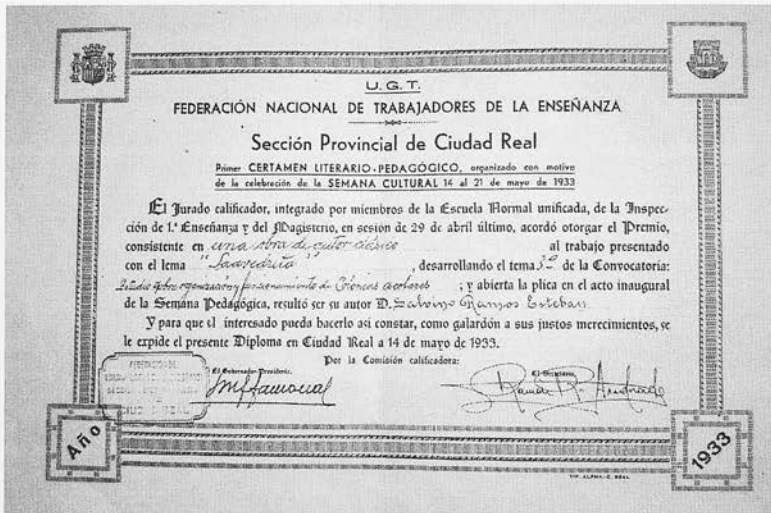 U. G. T.
FEDERACIÓN NACIONAL DE TRABAJADORES DE LA ENSEÑANZA
Sección Provincial de Ciudad Real
Primer CERTAMEN LITERARIO-PEDAGÓGICO, organizado con motivo
de la celebración de la SEMANA CULTURAL 14 al 21 de mayo de 1933
El Jurado calificador, integrado por miembros de la Escuela Normal unificada, de la Inspec-
ción de 1.ª Enseñanza y del Magisterio, en sesión de 29 de abril último, acordó otorgar el Premio,
consistente en una obra de autor clásico al trabajo presentado
con el lema "Saavedrito", desarrollando el tema 3º de la Convocatoria:
Estudio sobre organización y funcionamiento de Colonias escolares; y abierta la plica en el acto inaugural
de la Semana Pedagógica, resultó ser su autor D. Salvino Ramos Esteban
Y para que el interesado pueda hacerlo así constar, como galardón a sus justos merecimientos, se
le expide el presente Diploma en Ciudad Real a 14 de mayo de 1933.
Por la Comisión calificadora:
El Gobernador-Presidente,
El Secretario,
Ramón R. Andrade
FEDERACIÓN DE
CIUDAD REAL
Año
1933
TIP. ALPHA.-C. REAL